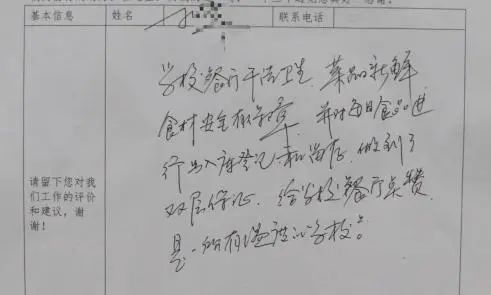 基本信息 姓名 联系电话
学校餐厅干净卫生、菜品新鲜
食材安全有保障，并对每日食品进
行出入库登记和留存，做到了
双层保证，给学校餐厅点赞
是一所有温度的学校。
请留下您对我
们工作的评价
和建议，谢
谢！